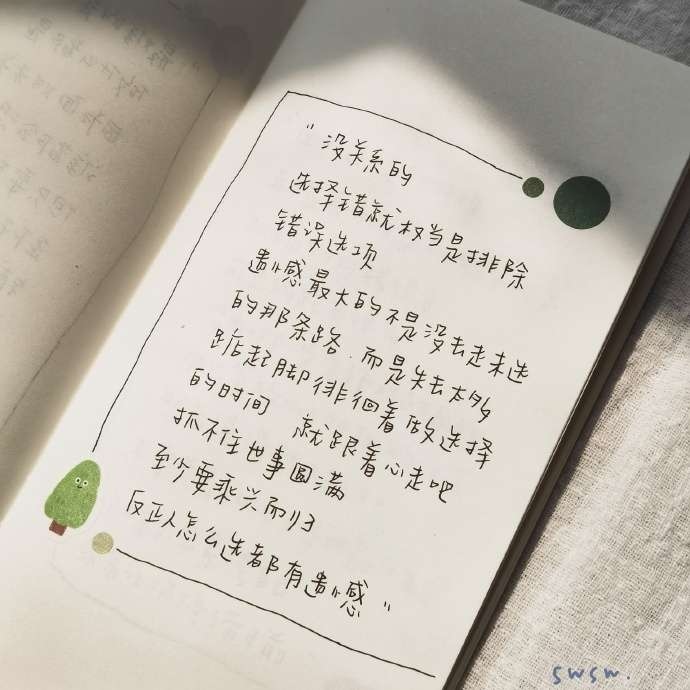 "没关系的
选择错就权当是排除
错误选项
遗憾感最大的不是没去走未选
的那条路.而是失去太多
踮起脚徘徊着做选择
的时间 就跟着心走吧
抓不住世事圆满
至少要乘兴而归
反正人怎么选都有遗憾"
swsw.